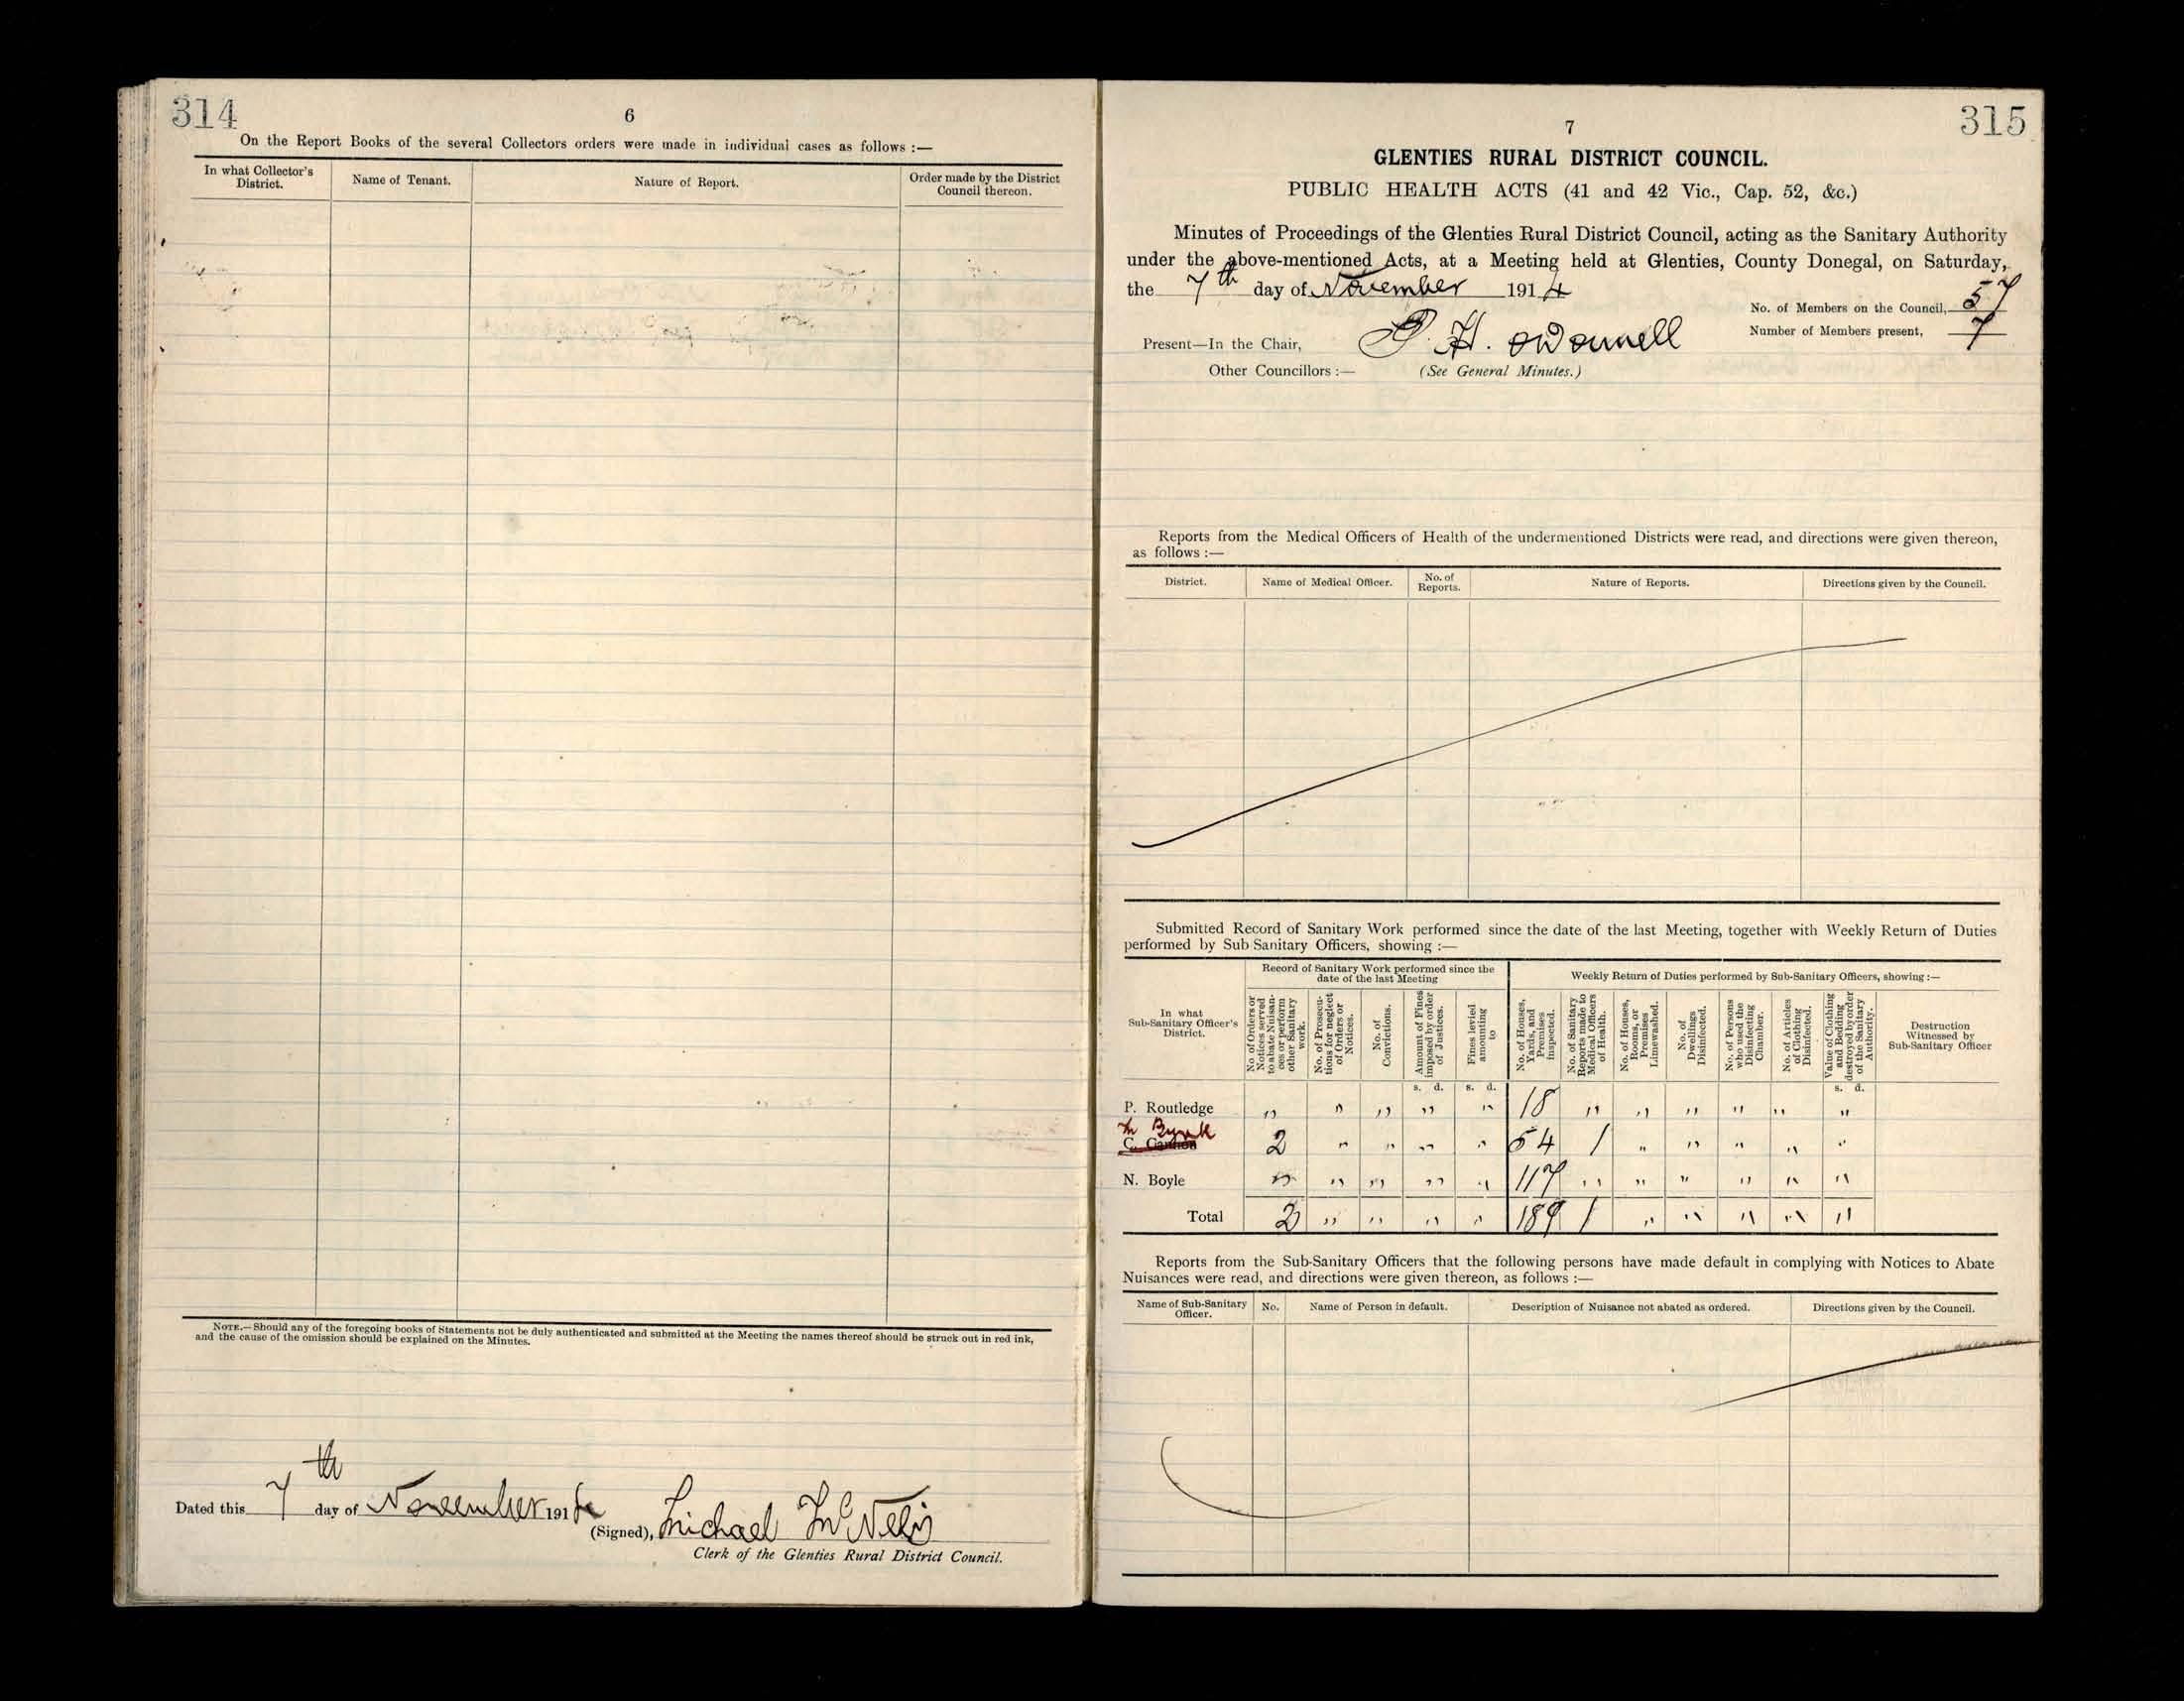 314
6
On the Report Books of the several Collectors orders were made in individual cases as follows :—
In what Collector's District.
Name of Tenant.
Nature of Report.
Order made by the District Council thereon.
NOTE.—Should any of the foregoing books of Statements not be duly authenticated and submitted at the Meeting the names thereof should be struck out in red ink,
and the cause of the omission should be explained on the Minutes.
Dated this 7th day of November 1914
(Signed), Michael McNelis
Clerk of the Glenties Rural District Council.
315
7
GLENTIES RURAL DISTRICT COUNCIL.
PUBLIC HEALTH ACTS (41 and 42 Vic., Cap. 52, &c.)
Minutes of Proceedings of the Glenties Rural District Council, acting as the Sanitary Authority
under the above-mentioned Acts, at a Meeting held at Glenties, County Donegal, on Saturday,
the 7th day of November 1914
No. of Members on the Council, 57
Number of Members present, 7
Present—In the Chair, P. H. O'Donnell
Other Councillors :— (See General Minutes.)
Reports from the Medical Officers of Health of the undermentioned Districts were read, and directions were given thereon,
as follows :—
District.
Name of Medical Officer.
No. of Reports.
Nature of Reports.
Directions given by the Council.
Submitted Record of Sanitary Work performed since the date of the last Meeting, together with Weekly Return of Duties
performed by Sub Sanitary Officers, showing :—
In what Sub-Sanitary Officer's District.
Record of Sanitary Work performed since the date of the last Meeting
Weekly Return of Duties performed by Sub-Sanitary Officers, showing :—
No of Orders or Notices served to abate Nuisances or perform other Sanitary work.
No. of Prosecutions for neglect of Orders or Notices.
No. of Convictions.
Amount of Fines imposed by order of Justices.
Fines levied amounting to
No. of Houses, Yards, and Premises Inspected.
No. of Sanitary Reports made to Medical Officers of Health.
No. of Houses, Rooms, or Premises Limewashed.
No. of Dwellings Disinfected.
No. of Persons who used the Disinfecting Chamber.
No. of Articles of Clothing Disinfected.
Value of Clothing and Bedding destroyed by order of the Sanitary Authority.
Destruction Witnessed by Sub-Sanitary Officer
s. d. s. d. s. d.
P. Routledge " " " " " 18 " " " " " "
Byrne
C. Gannon 2 " " " " 54 1 " " " " "
N. Boyle " " " " " 117 " " " " " "
Total 2 " " " " 189 1 " " " " "
Reports from the Sub-Sanitary Officers that the following persons have made default in complying with Notices to Abate
Nuisances were read, and directions were given thereon, as follows :—
Name of Sub-Sanitary Officer.
No.
Name of Person in default.
Description of Nuisance not abated as ordered.
Directions given by the Council.